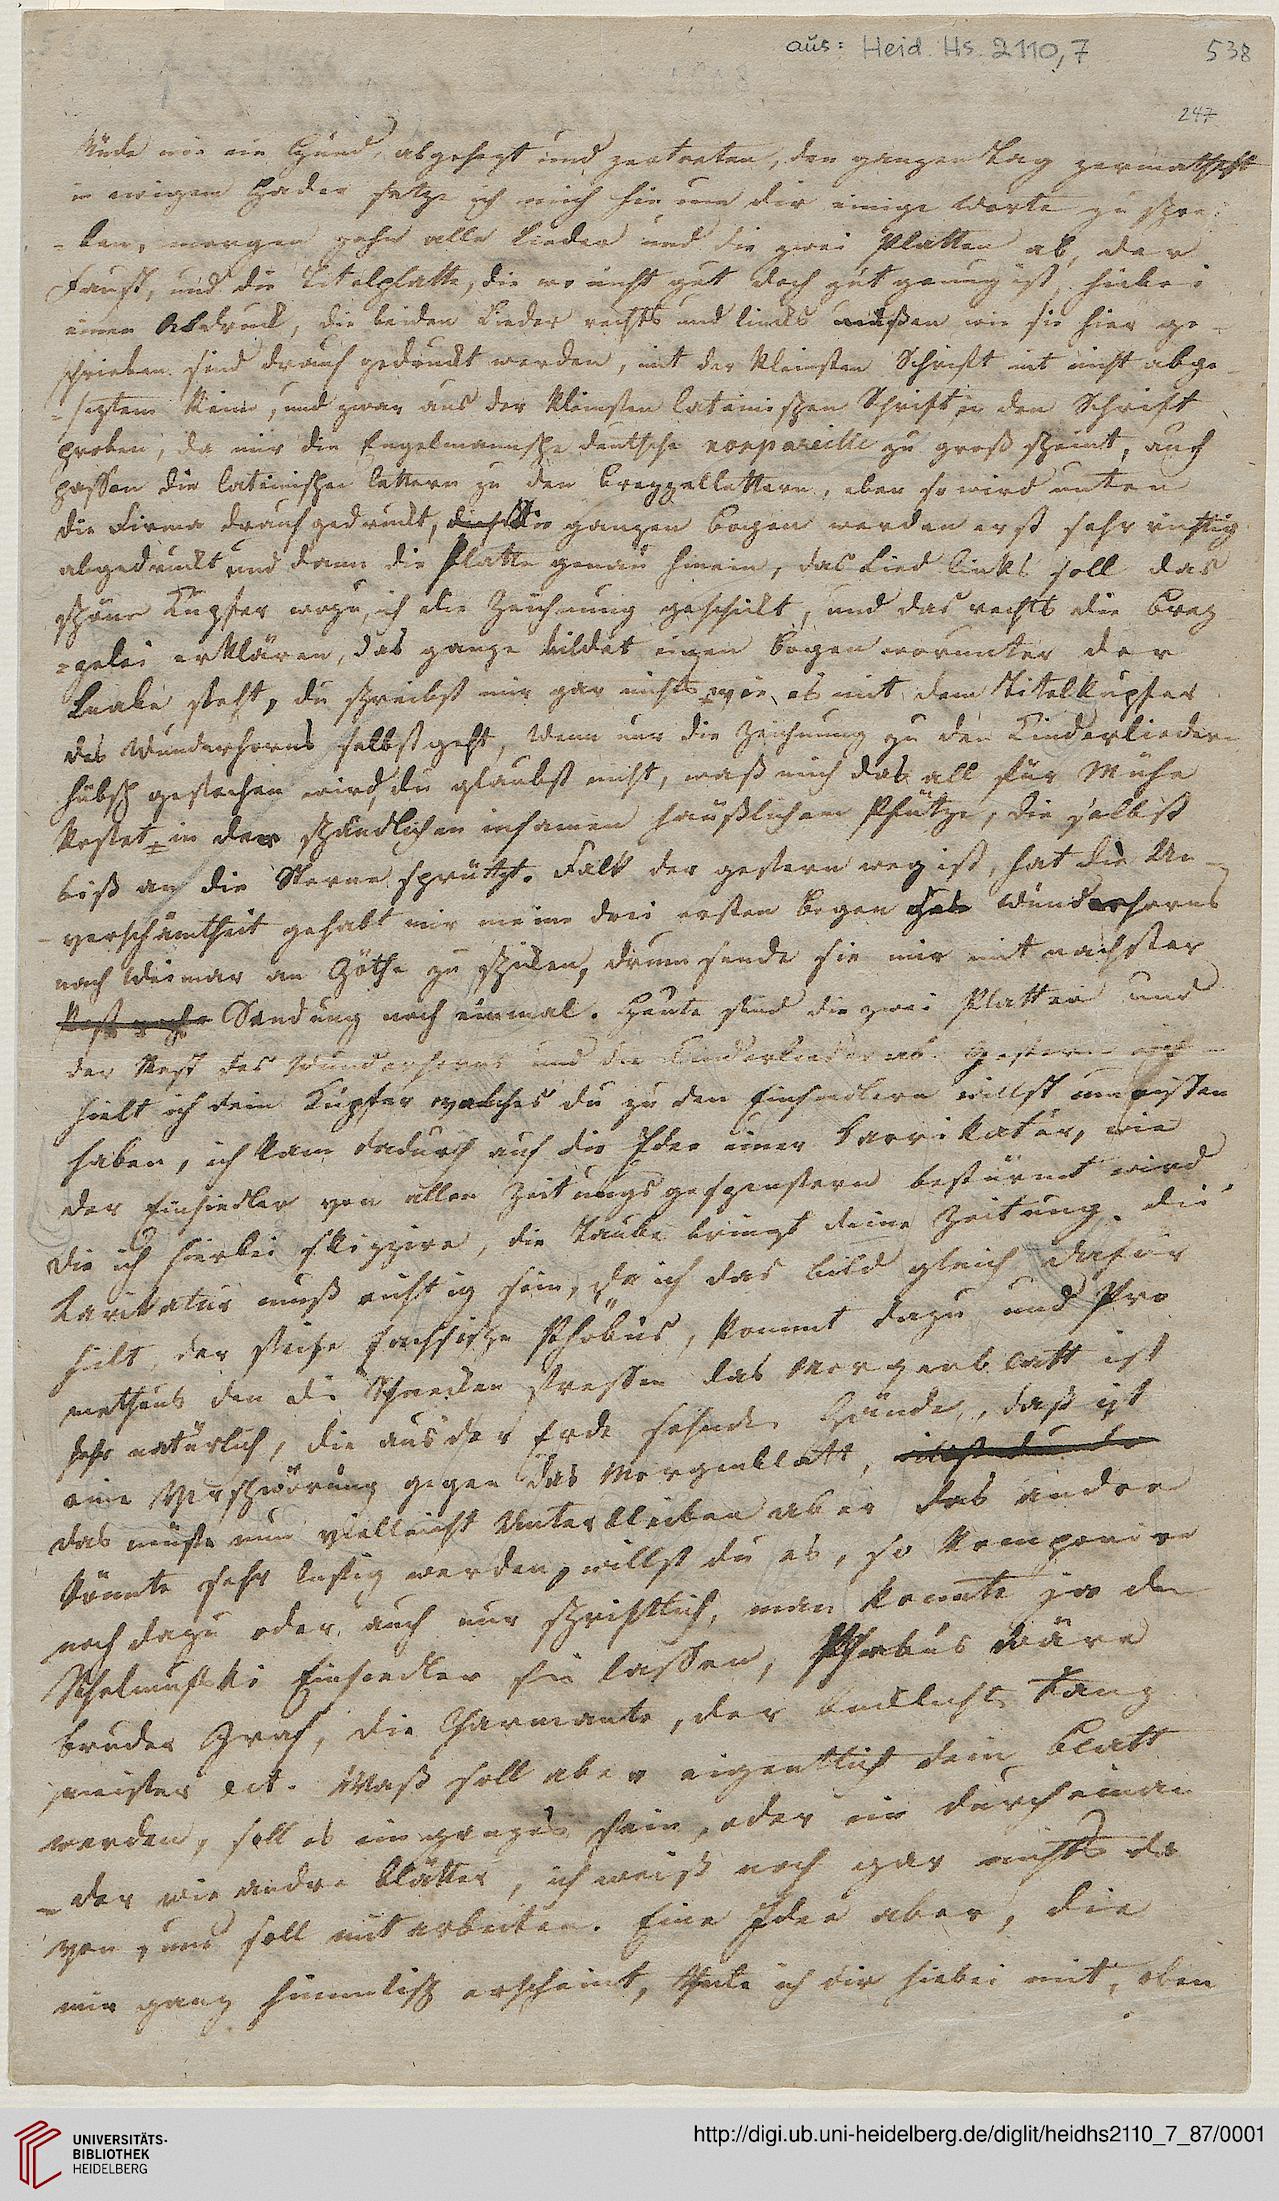 aus: Heid. Hs. 2110,7
538
247
Müde wie ein Hund, abgehezt und zertreten, den ganzen Tag zermatscht
in ewigem Hader setze ich mich hin um dir einige Worte zu schrei-
-ben, morgen gehn alle Lieder und die zwei Platten ab, der
Faust, und die Titelplatte, die wo nicht gut doch gut genug ist, hiebei
einen Abdruck, die beiden Lieder rechts und links müßen wie sie hier ge-
schrieben sind drauf gedruckt werden, mit der kleinsten Schrift mit nicht abge-
-seztem Reim, und zwar aus der kleinsten lateinischen Schrift in den Schrift
proben, da mir die Engelmannsche deutsche nonpareille zu groß scheint, auch
passen die lateinischen lettern zu den Brezzellettern, eben so wird unten
die Firma drauf gedruckt, die ganzen Bogen werden erst sehr richtig
abgedruckt und dann die Platte genau hinein, das Lied links soll das
schöne Kupfer wozu ich die Zeichnung geschickt, und das rechts die Brez-
=zelei erklären, das ganze bildet einen Bogen worunter der
Knabe steht, du schreibst mir gar nichts wie es mit dem Titelkupfer
des Wunderhorns selbst geht, Wenn nur die Zeichnung zu den Kinderliedern
hübsch gestochen wird, du glaubst nicht, waß mich das all für Mühe
kostet in der schändlichen infamen häußlichen Pfütze, die selbst
biß an die Sterne sprützt. Falk der gestern weg ist, hat die Un-
-verschämtheit gehabt mir meine drei ersten Bogen des Wunderhorns
nach Weimar an Göthe zu schicken, drum sende sie mir mit nächster
Sendung noch einmal. Heute sind die zwei Platten und
der Rest des Wunderhorns und die Kinderlieder ab. Gestern er-
hielt ich dein Kupfer welches du zu den Einsiedlern willst umrissen
haben, ich kam dadurch auf die Idee einer Karrikatur, wie
der Einsiedler von allen Zeitungsgespenstern bestürmt wird
die ich hierbei skizzire, die Taube bringt deine Zeitung. die
Karikatur muß richtig sein, da ich das bild gleich dafür
hielt, der steife sächsische Phöbus, kommt dazu und Pro
metheus den die Schnecken fressen das Morgenblatt ist
sehr natürlich, die aus der Erde sehnde Hände, daß ist
eine Verschwörung gegen das Morgenblatt,
das müste nun vielleicht Unterbleiben aber das andre
könnte sehr lustig werden, willst du es, so komponire
noch dazu oder auch nur schriftlich, man konnte ja den
Schelmufski Einsiedler sein lassen, Phöbus wäre
bruder Graf, die Charmante, der Tanz
meister ect. Waß soll aber eigentlich dein Blatt
werden, soll es ein ganzes sein, oder ein durcheinan
-der wie andre blätter, ich weiß noch gar nichts da
von, uns soll mitarbeiten. Eine Idee aber, die
mir ganz himmlisch erscheint, theile ich dir hiebei mit, oben
UNIVERSITÄTS-
BIBLIOTHEK
HEIDELBERG
http://digi.ub.uni-heidelberg.de/diglit/heidhs2110_7_87/0001